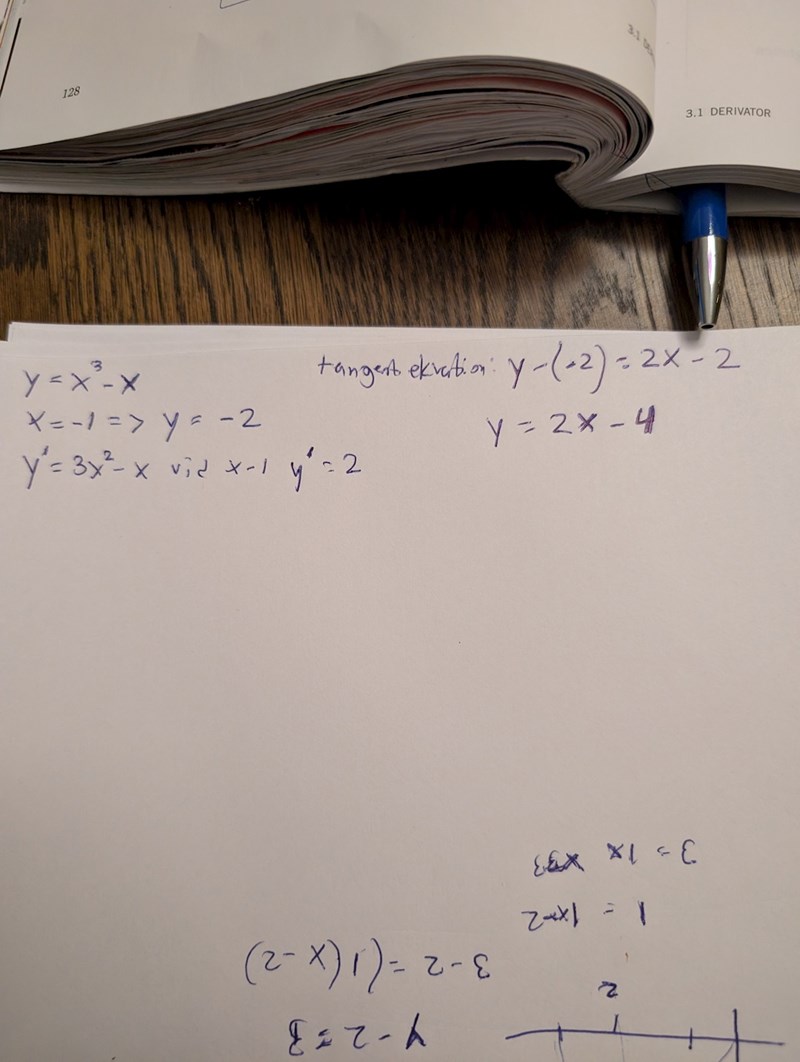 128
3.1 DERIVATOR
y = x³ - x
x = -1 => y = -2
y' = 3x² - x vid x-1 y' = 2
tangent ekvation: y - (-2) = 2x - 2
y = 2x - 4
y - 2 = 3
3 - 2 = (1(x - 2)
2
1 = 1x-2
3 = 1x